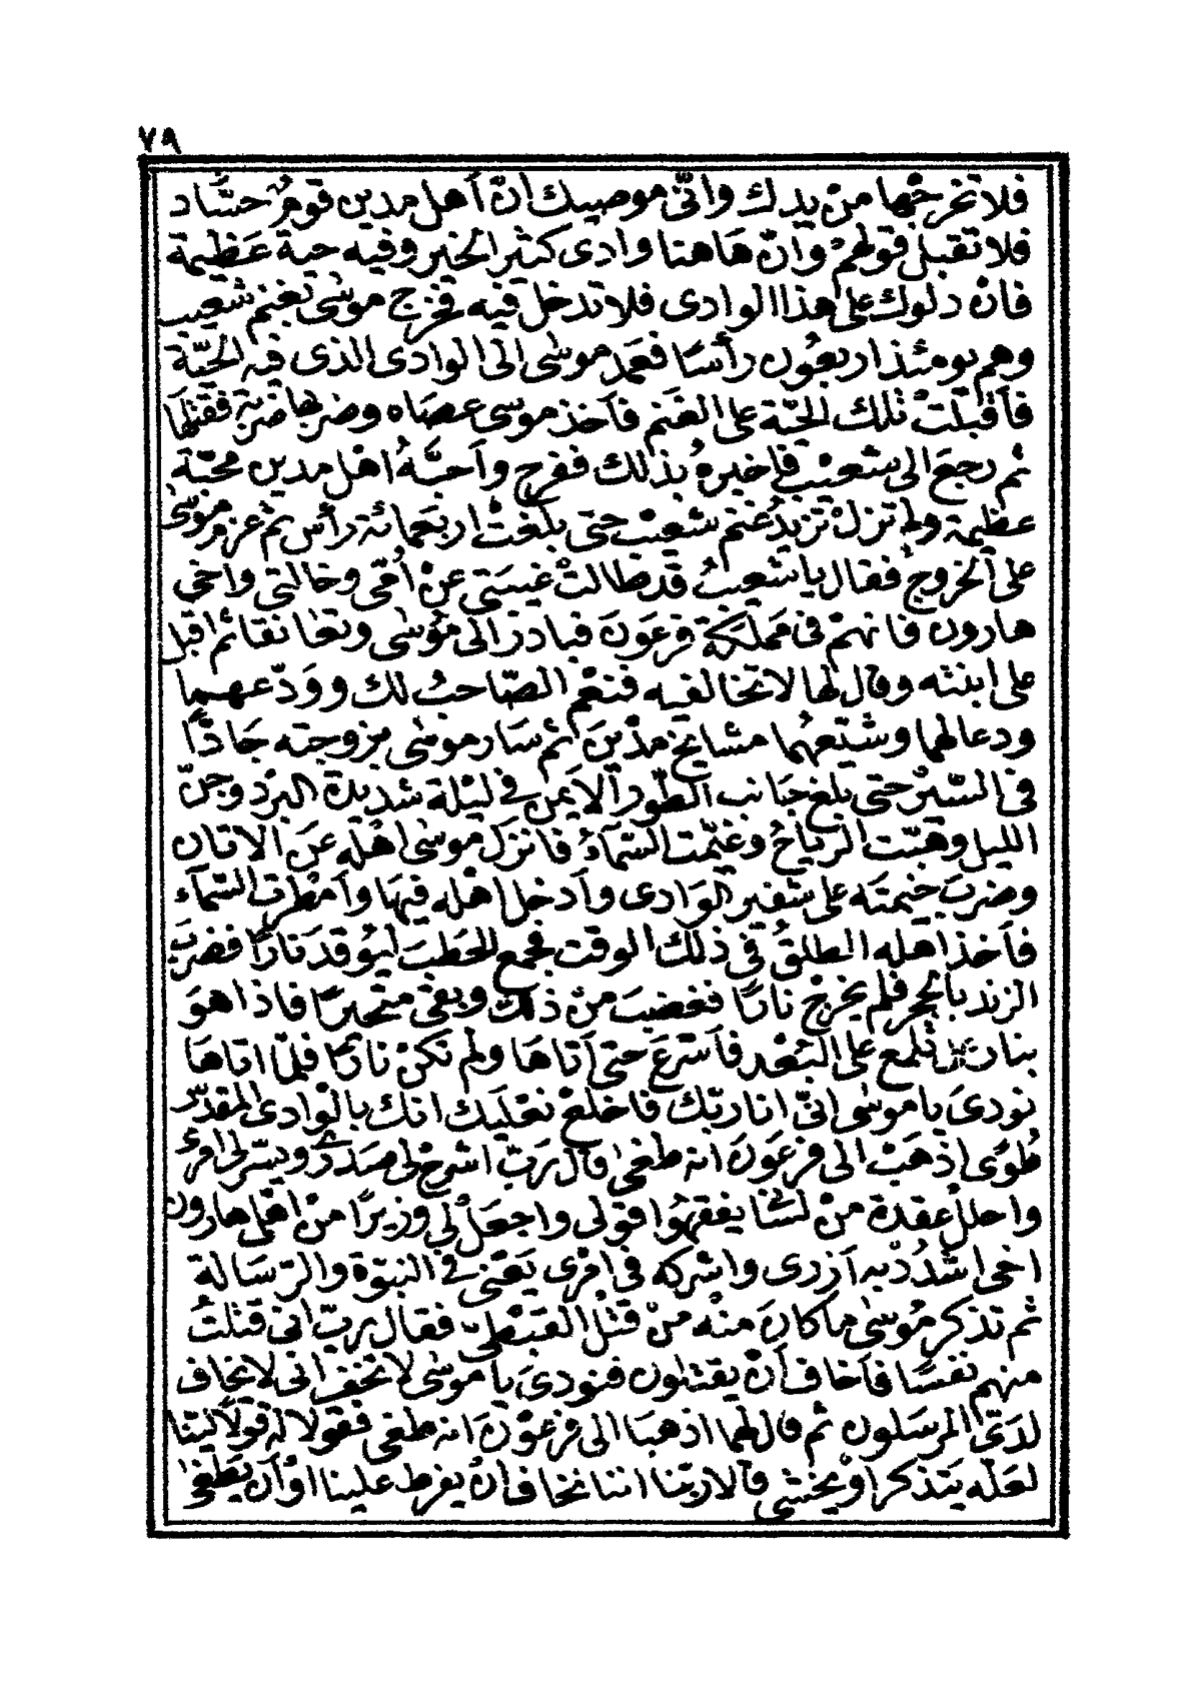 ٧٩
فلا تخرجها من يدك وانّى موصيك انّ أهل مدين قومٌ حسّاد
فلا تقبل قولهم وانّ هاهنا وادى كثير الخير وفيه حية عظيمة
فان دلوك على هذا الوادى فلا تدخل فيه فخرج موسى بغنم شعيب
وهم يومئذ اربعون رأسا فعمد موسى الى الوادى الذى فيه الحيّة
فأقبلت تلك الحيّة على الغنم فأخذ موسى عصاه وضربها ضربة فقتلها
ثم رجع الى شعيب فاخبره بذلك ففرح وأحبّه اهل مدين محبّة
عظيمة ولم تزل تزيد غنم شعيب حتى بلغت اربعمائة رأس ثم عزم موسى
على الخروج فقال يا شعيب قد طالت غيبتى عن أمّى وخالتى واخى
هارون فانهم فى مملكة فرعون فبادر الى موسى وتعانقا ثم اقبل
على ابنته وقال لها لا تخالفيه فنعم الصّاحب لك وودّعهما
ودعا لهما وشيّعهما مشايخ مدين ثم سار موسى بزوجته جادّا
فى السّير حتى بلغ جانب الطّور الأيمن فى ليلة شديدة البرد وجنّ
الليل وهبّت الرياح وغيّمت السّماء فانزل موسى اهله عن الاتان
وضرب خيمته على شفير الوادى وأدخل اهله فيها وأمطرت السّماء
فأخذ اهله الطلق فى ذلك الوقت فجمع الحطب ليوقد نارًا فضرب
الزند بالحجر فلم يخرج نارًا فغضب من ذلك وبقى متحيرًا فاذا هو
بنار تلمع على البعد فأسرع حتى أتاها ولم تكن نارًا فلمّا اتاها
نودى يا موسى انّى انا ربّك فاخلع نعليك انك بالوادى المقدّس
طوًى اذهب الى فرعون انه طغى قال ربّ اشرح لى صدرى ويسّر لى امرى
واحلل عقدة من لسانى يفقهوا قولى واجعل لى وزيرًا من اهلى هارون
اخى اشدد به أزرى واشركه فى امرى يعنى فى النبوّة والرّسالة
ثم تذكر موسى ما كان منه من قتل القبطىّ فقال ربّ انى قتلت
منهم نفسًا فأخاف أن يقتلون فنودى يا موسى لا تخف انى لا يخاف
لدىّ المرسلون ثم قال لهما اذهبا الى فرعون انه طغى فقولا له قولًا ليّنا
لعلّه يتذكر او يخشى قالا ربّنا اننا نخاف أن يفرط علينا او أن يطغى